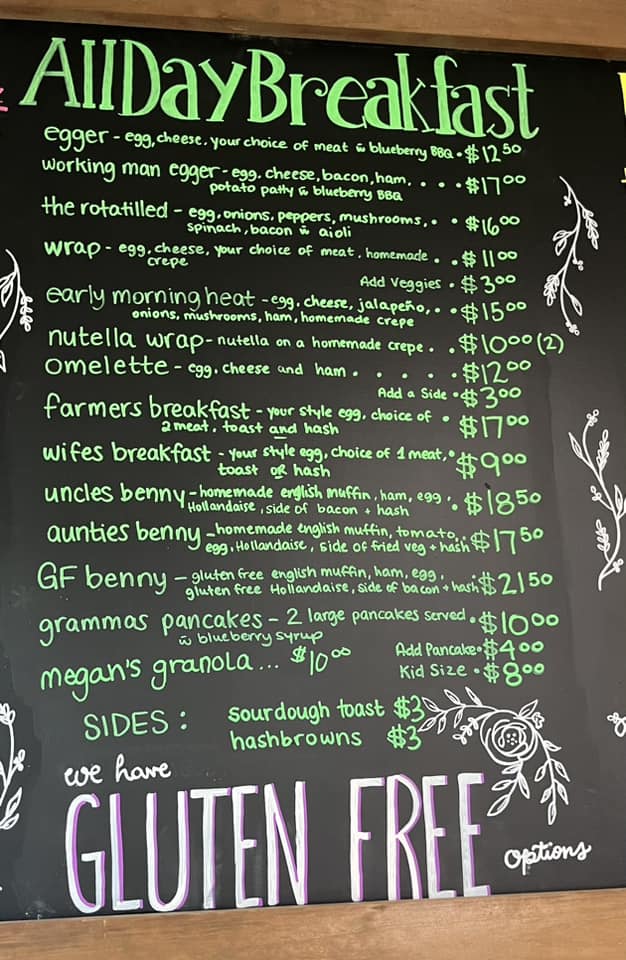 All Day Breakfast
egger - egg, cheese, your choice of meat w̄ blueberry BBQ • $12⁵⁰
working man egger - egg, cheese, bacon, ham, . . . . $17⁰⁰
potato patty w̄ blueberry BBQ
the rotatilled - egg, onions, peppers, mushrooms, . . $16⁰⁰
spinach, bacon w̄ aioli
wrap - egg, cheese, your choice of meat, homemade . . $11⁰⁰
crepe
Add Veggies • $3⁰⁰
early morning heat - egg, cheese, jalapeño, . . $15⁰⁰
onions, mushrooms, ham, homemade crepe
nutella wrap - nutella on a homemade crepe . . $10⁰⁰ (2)
omelette - egg, cheese and ham . . . . . $12⁰⁰
Add a Side • $3⁰⁰
farmers breakfast - your style egg, choice of • $17⁰⁰
2 meat, toast and hash
wifes breakfast - your style egg, choice of 1 meat, • $9⁰⁰
toast OR hash
uncles benny - homemade english muffin, ham, egg . . $18⁵⁰
Hollandaise, side of bacon + hash
aunties benny - homemade english muffin, tomato, . . $17⁵⁰
egg, Hollandaise, side of fried veg + hash
GF benny - gluten free english muffin, ham, egg, . . $21⁵⁰
gluten free Hollandaise, side of bacon + hash
grammas pancakes - 2 large pancakes served • $10⁰⁰
w̄ blueberry syrup
Add Pancake • $4⁰⁰
megan's granola... $10⁰⁰
Kid Size • $8⁰⁰
SIDES: sourdough toast $3
hashbrowns $3
we have
GLUTEN FREE
options